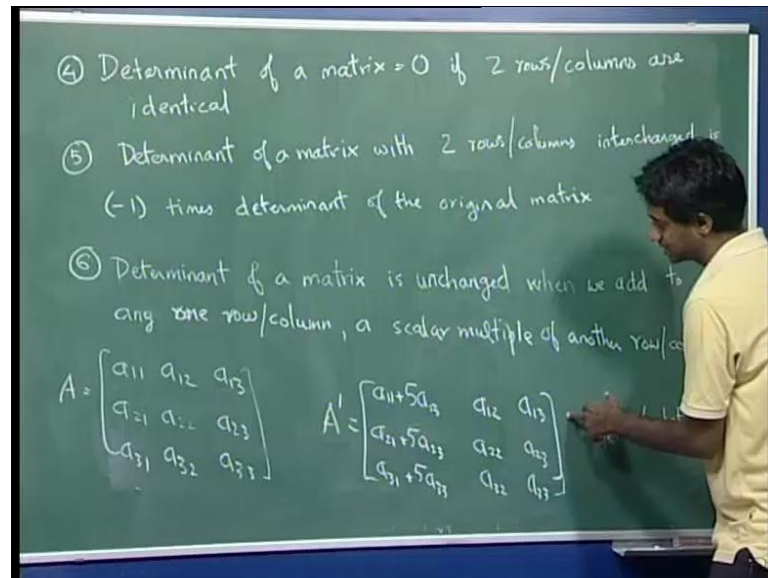 ④ Determinant of a matrix = 0 if 2 rows/columns are
identical
⑤ Determinant of a matrix with 2 rows/columns interchanged is
(-1) times determinant of the original matrix
⑥ Determinant of a matrix is unchanged when we add to
any one row/column, a scalar multiple of another row/
A = [a11 a12 a13
a21 a22 a23
a31 a32 a33]
A' = [a11+5a13 a12 a13
a21+5a23 a22 a23
a31+5a33 a32 a33]